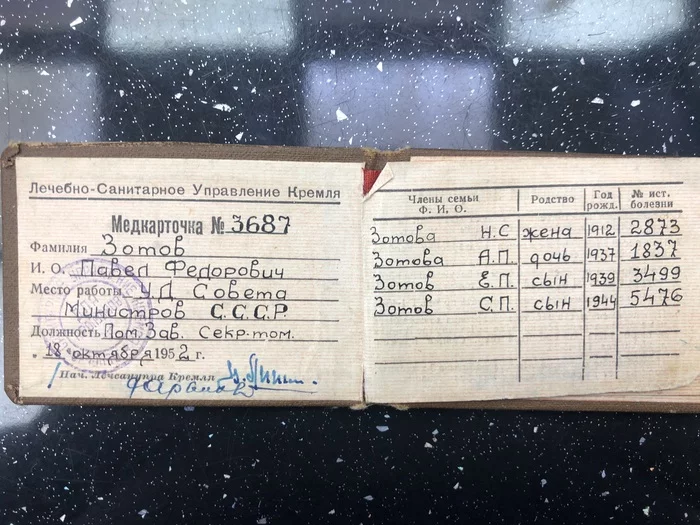 Лечебно-Санитарное Управление Кремля
Медкарточка № 3687
Фамилия Зотов
И. О. Павел Федорович
Место работы УД Совета
Министров С.С.С.Р.
Должность Пом. Зав. Секр-том.
18 октября 1952 г.
Нач. Лечсанупра Кремля
Члены семьи Ф. И. О. Родство Год рожд. № ист. болезни
Зотова Н.С. жена 1912 2873
Зотова А.П. дочь 1937 1837
Зотов Е.П. сын 1939 3499
Зотов С.П. сын 1944 5476